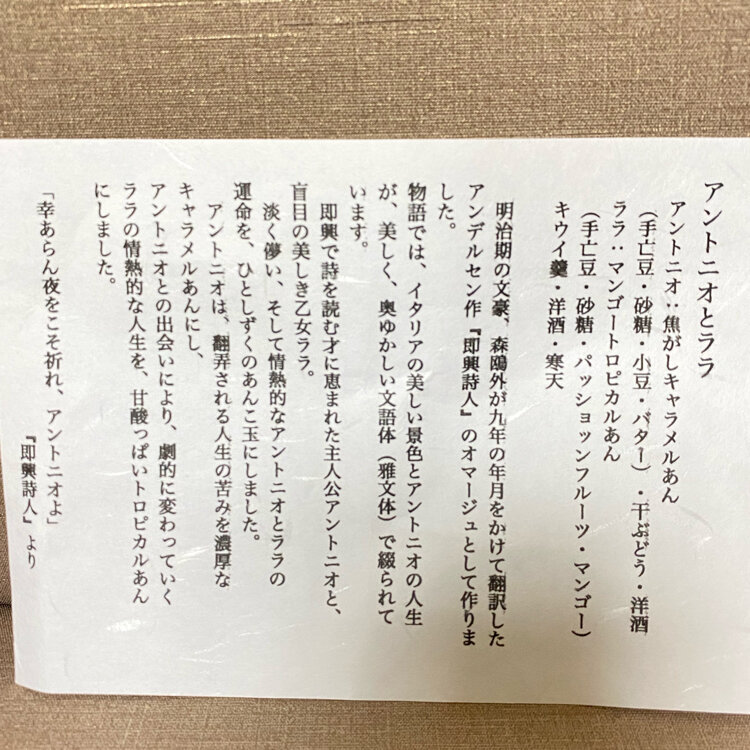 アントニオとララ
アントニオ：焦がしキャラメルあん
（手亡豆・砂糖・小豆・バター）・干ぶどう・洋酒
ララ：マンゴートロピカルあん
（手亡豆・砂糖・パッションフルーツ・マンゴー）
キウイ羹・洋酒・寒天
明治期の文豪、森鴎外が九年の年月をかけて翻訳した
アンデルセン作『即興詩人』のオマージュとして作りま
した。
物語では、イタリアの美しい景色とアントニオの人生
が、美しく、奥ゆかしい文語体（雅文体）で綴られて
います。
即興で詩を読む才に恵まれた主人公アントニオと、
盲目の美しき乙女ララ。
淡く儚い、そして情熱的なアントニオとララの
運命を、ひとしずくのあんこ玉にしました。
アントニオは、翻弄される人生の苦みを濃厚な
キャラメルあんにし、
アントニオとの出会いにより、劇的に変わっていく
ララの情熱的な人生を、甘酸っぱいトロピカルあん
にしました。
「幸あらん夜をこそ祈れ、アントニオよ」
『即興詩人』より